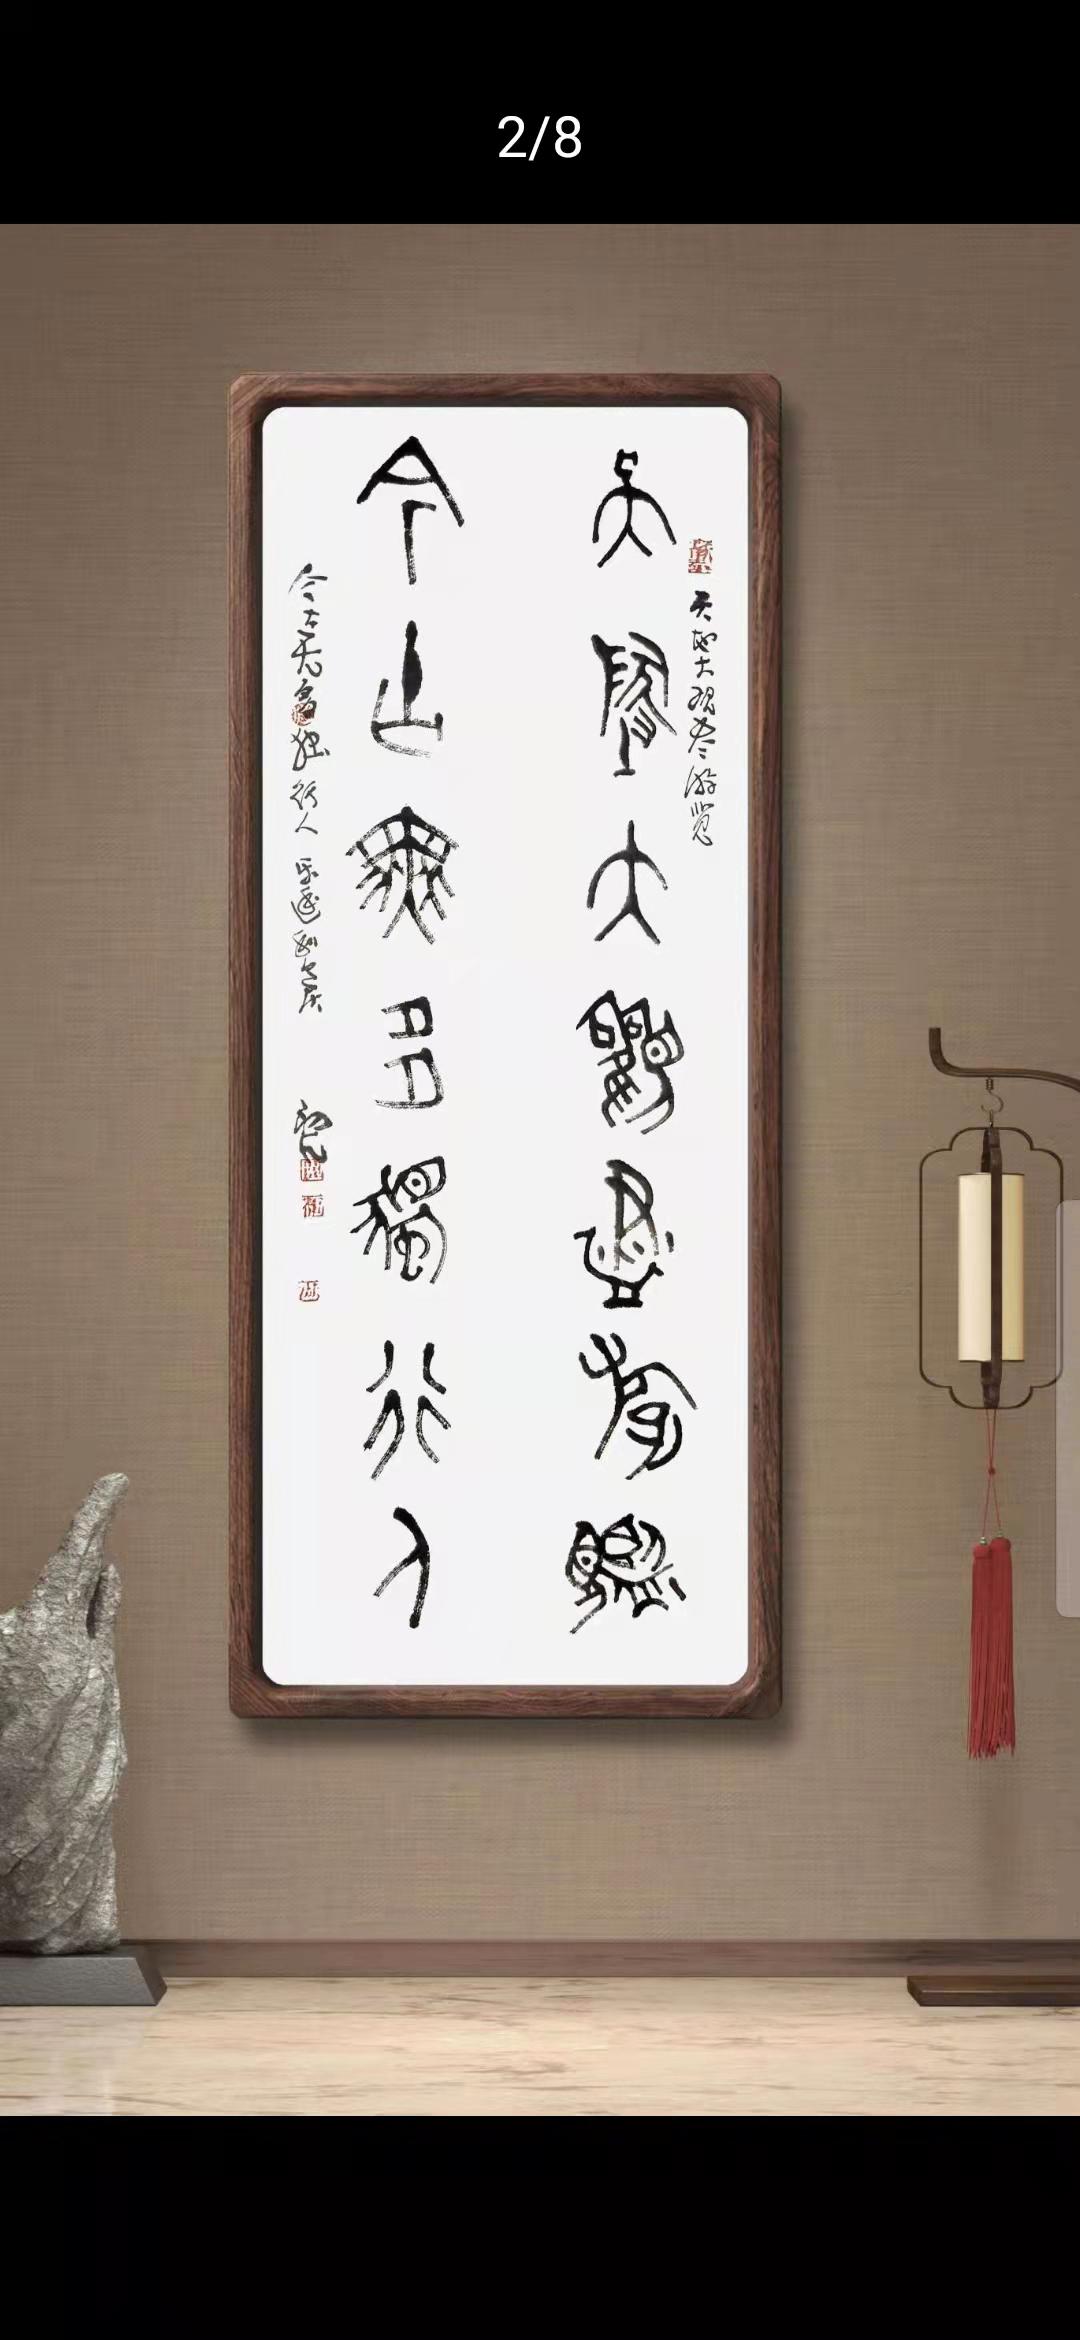 2/8
天地大觀盡游覽
今古無多獨行人
天地大观尽游览
今古无多独行人